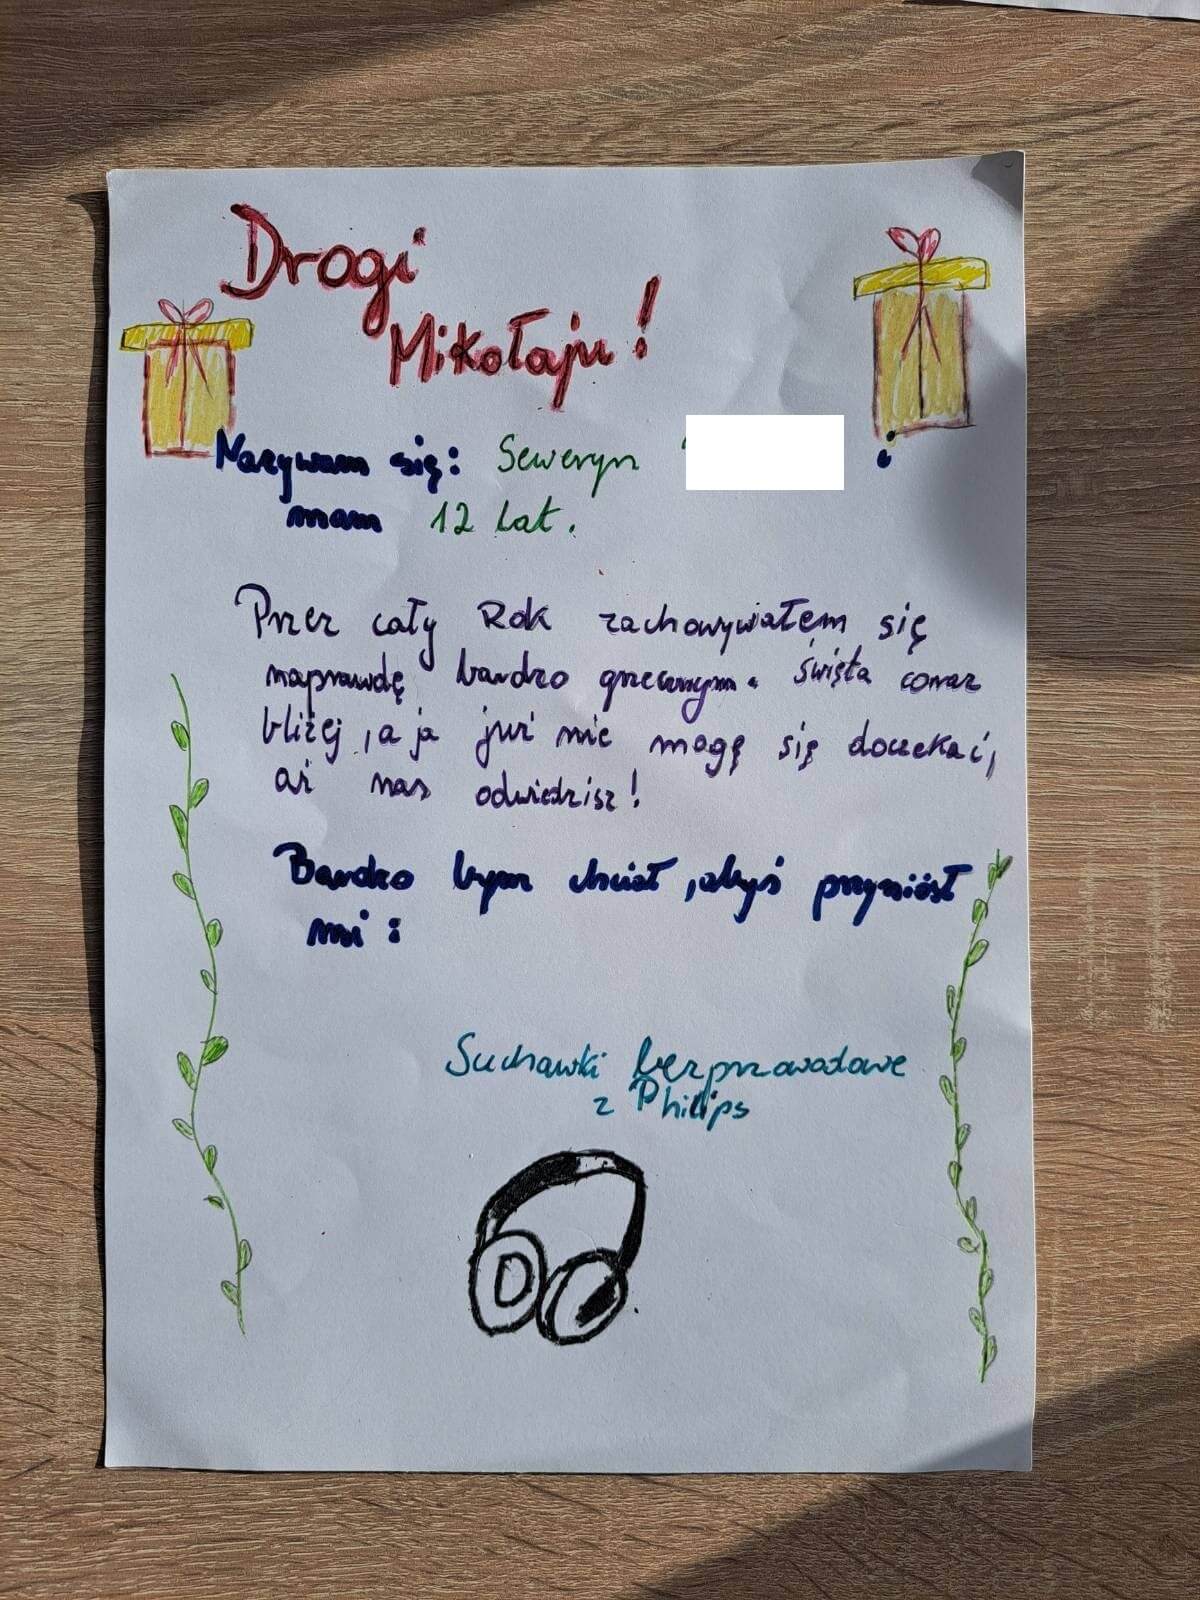 Drogi
Mikołaju!
Nazywam się: Seweryn i
mam 12 lat.
Przez cały Rok zachowywałem się
naprawdę bardzo grzecznym. święta coraz
bliżej, a ja już nie mogę się doczekać,
aż nas odwiedzisz!
Bardzo bym chciał, abyś przyniósł
mi:
Suchawki bezprzewodowe
z Philips